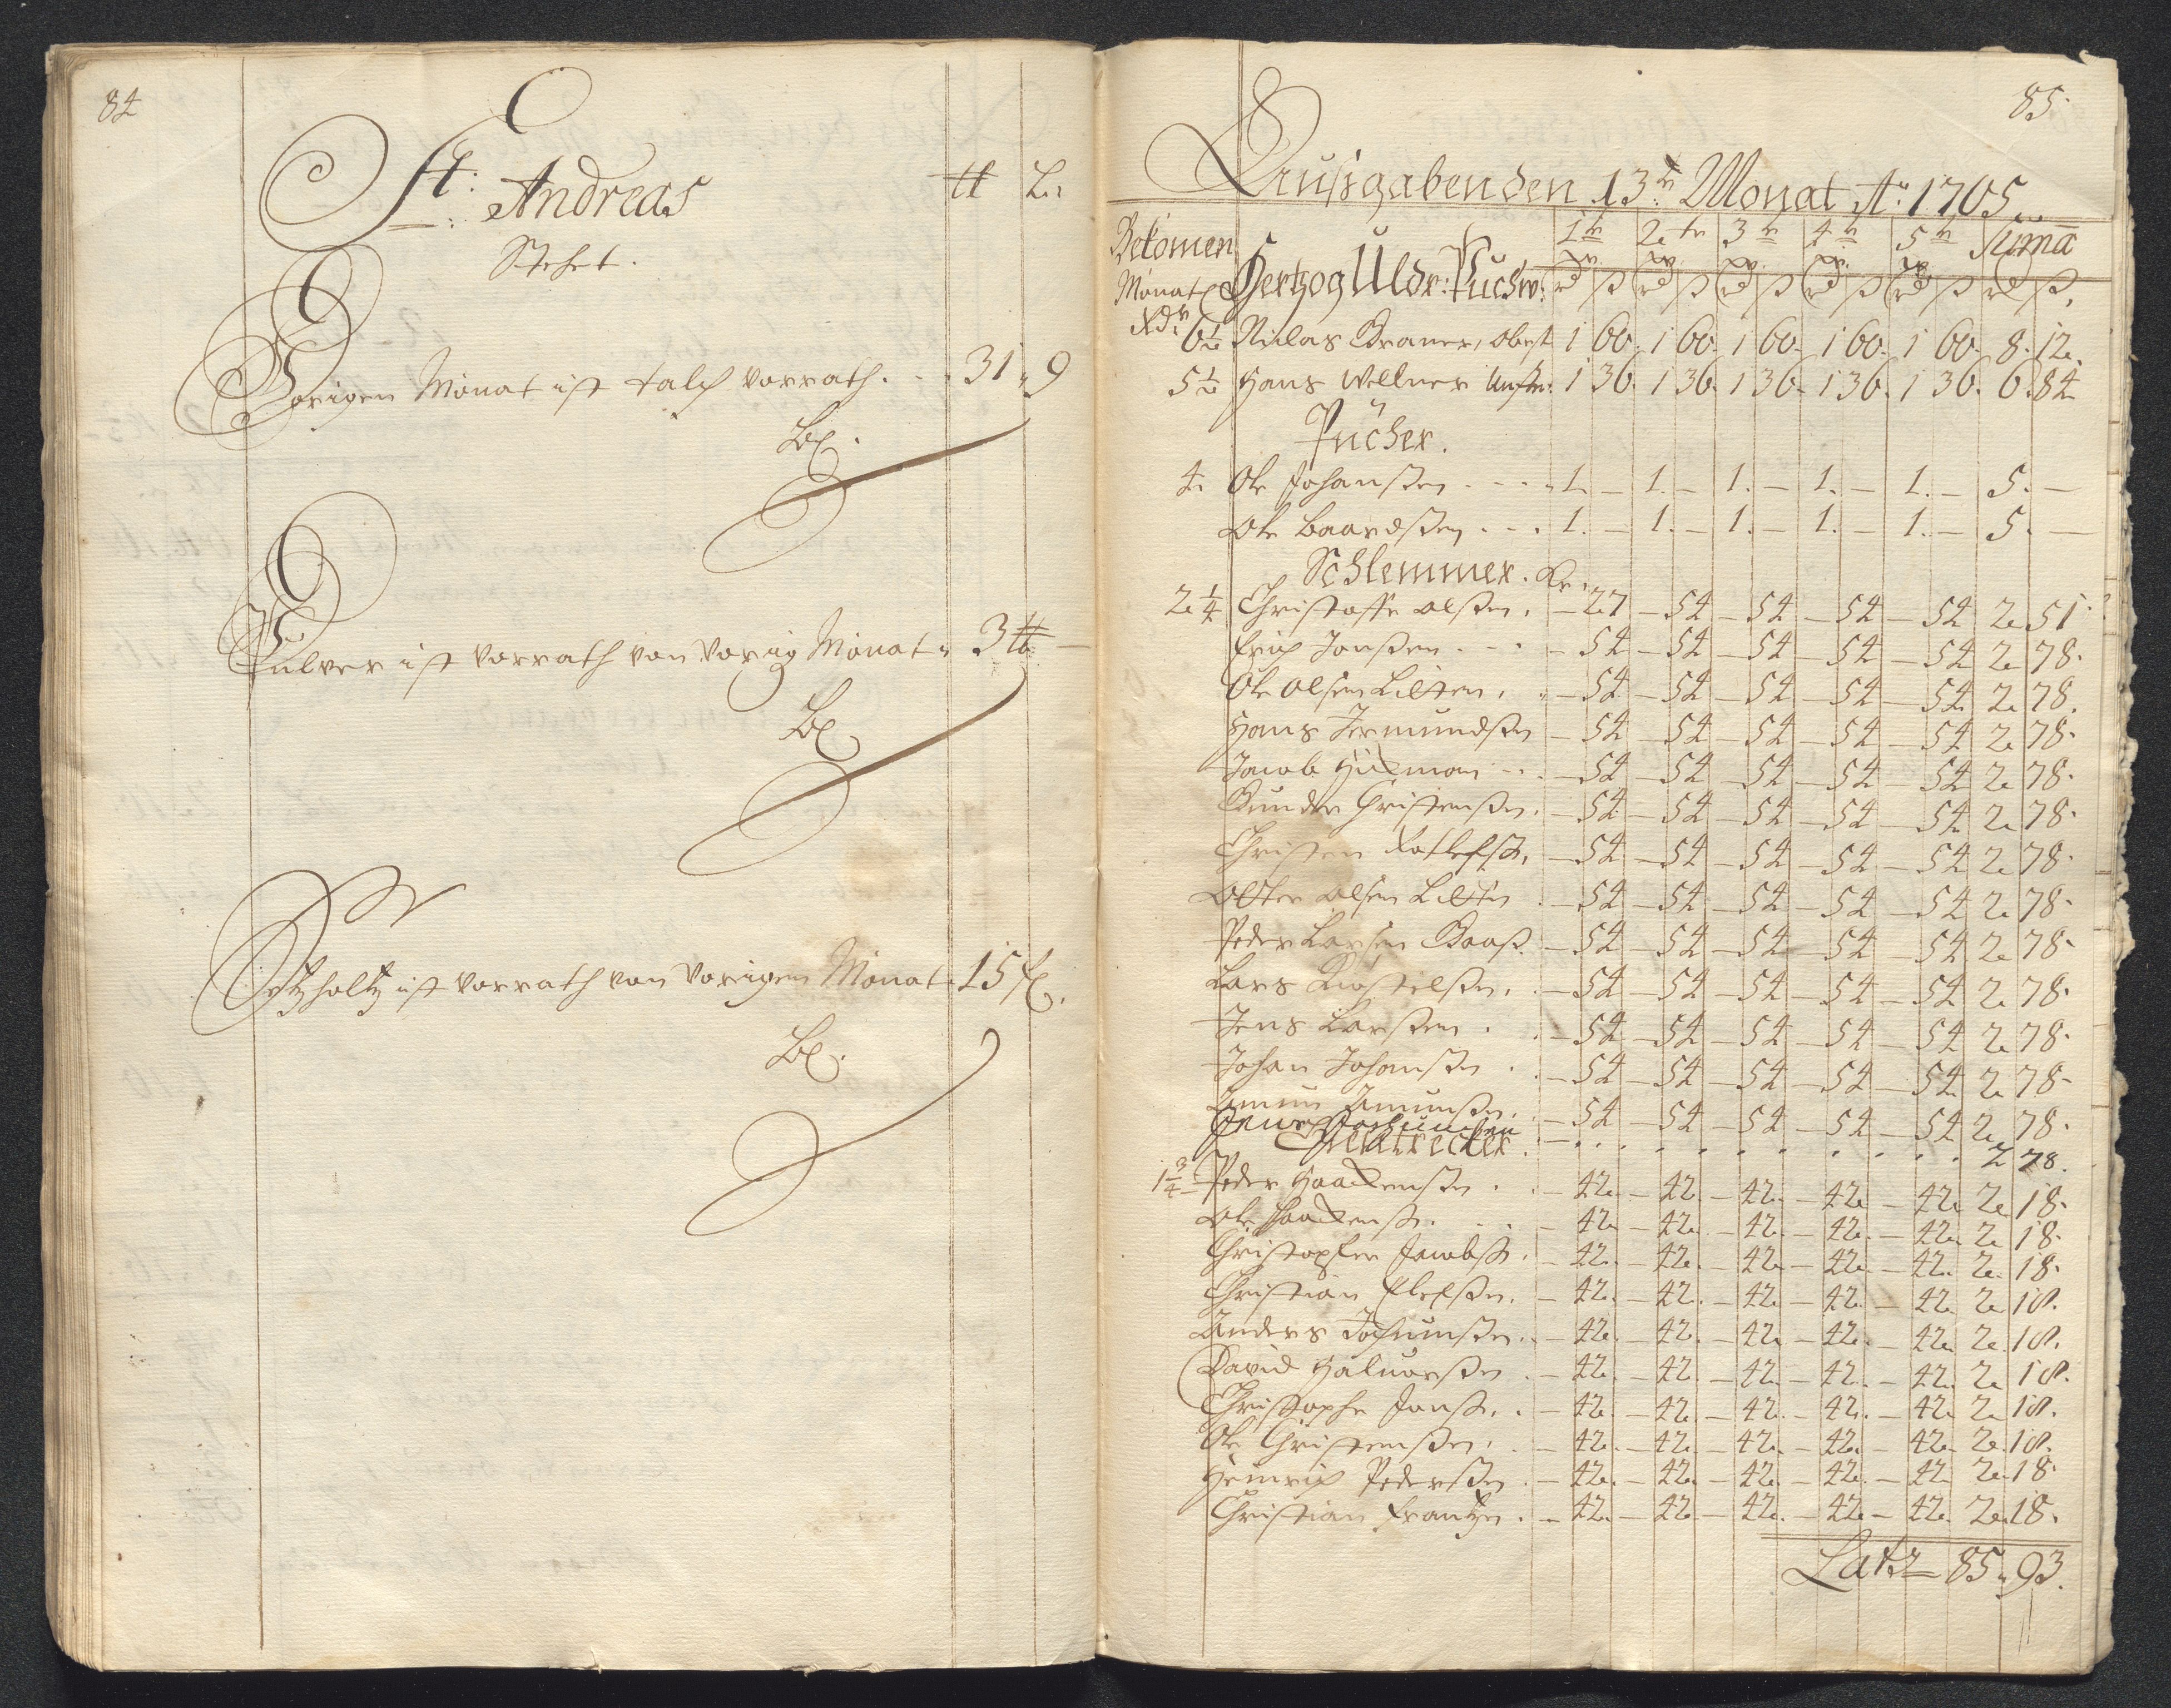 84
St: Andreas
Stehet.
℔ L.
Vorigen Monat ist talch vorrath. . . 31 „ 9
Pulver ist vorrath von vorig Monat „ 3 ℔ —
Setzholtz ist vorrath von vorigen Monat . 15
85.
Aussgaben den 13tn Monat Ao 1705
Bekomen
Monat
Hertzog Uldr: Puchw:
1tr 2tr 3tr 4tr 5tr Suma
rd ß rd ß rd ß rd ß rd ß rd ß
6½ Niclas Braner, obest 1 60. 1 60. 1 60. 1 60. 1 60. 8. 12.
5½ Hans Wellner Unstr: 1 36. 1 36. 1 36. 1 36. 1 36. 6. 84
Pücher.
4 Ole Johanßen . . . 1. — 1. — 1. — 1. — 1. — 5. —
Ole Baardßen . . . 1. — 1. — 1. — 1. — 1. — 5. —
Schlemmer.
2¼ Christoffe Olßen. — 27 — 54 — 54 — 54 — 54 2 51.
Erich Jonßen . . . — 54 — 54 — 54 — 54 — 54 2 78.
Ole Olsen Litten. — 54 — 54 — 54 — 54 — 54 2 78.
Hans Jermundßen — 54 — 54 — 54 — 54 — 54 2 78.
Jacob . . — 54 — 54 — 54 — 54 — 54 2 78.
Gunder Christenßen. — 54 — 54 — 54 — 54 — 54 2 78.
Christen — 54 — 54 — 54 — 54 — 54 2 78.
Olsen Litten — 54 — 54 — 54 — 54 — 54 2 78.
Peder Larsen Baaß — 54 — 54 — 54 — 54 — 54 2 78.
Lars . — 54 — 54 — 54 — 54 — 54 2 78.
Jens Larßen . — 54 — 54 — 54 — 54 — 54 2 78.
Johan Johanßen . — 54 — 54 — 54 — 54 — 54 2 78.
Amun Amunßen. — 54 — 54 — 54 — 54 — 54 2 78.
2 78.
1¾ Peder Haackenßen . — 42 — 42 — 42 — 42 — 42 2 18.
Ole Haackenß. . . — 42 — 42 — 42 — 42 — 42 2 18.
Christopher Jacobß. — 42 — 42 — 42 — 42 — 42 2 18.
Christian — 42 — 42 — 42 — 42 — 42 2 18.
Anders Jochumßen. — 42 — 42 — 42 — 42 — 42 2 18.
David Haluorßen . — 42 — 42 — 42 — 42 — 42 2 18.
Christophe Jonß. . — 42 — 42 — 42 — 42 — 42 2 18.
Ole Christenßen. — 42 — 42 — 42 — 42 — 42 2 18.
Heinrich Pederßen . — 42 — 42 — 42 — 42 — 42 2 18.
Christian Frantzen . — 42 — 42 — 42 — 42 — 42 2 18.
Latz — 85 „ 93.